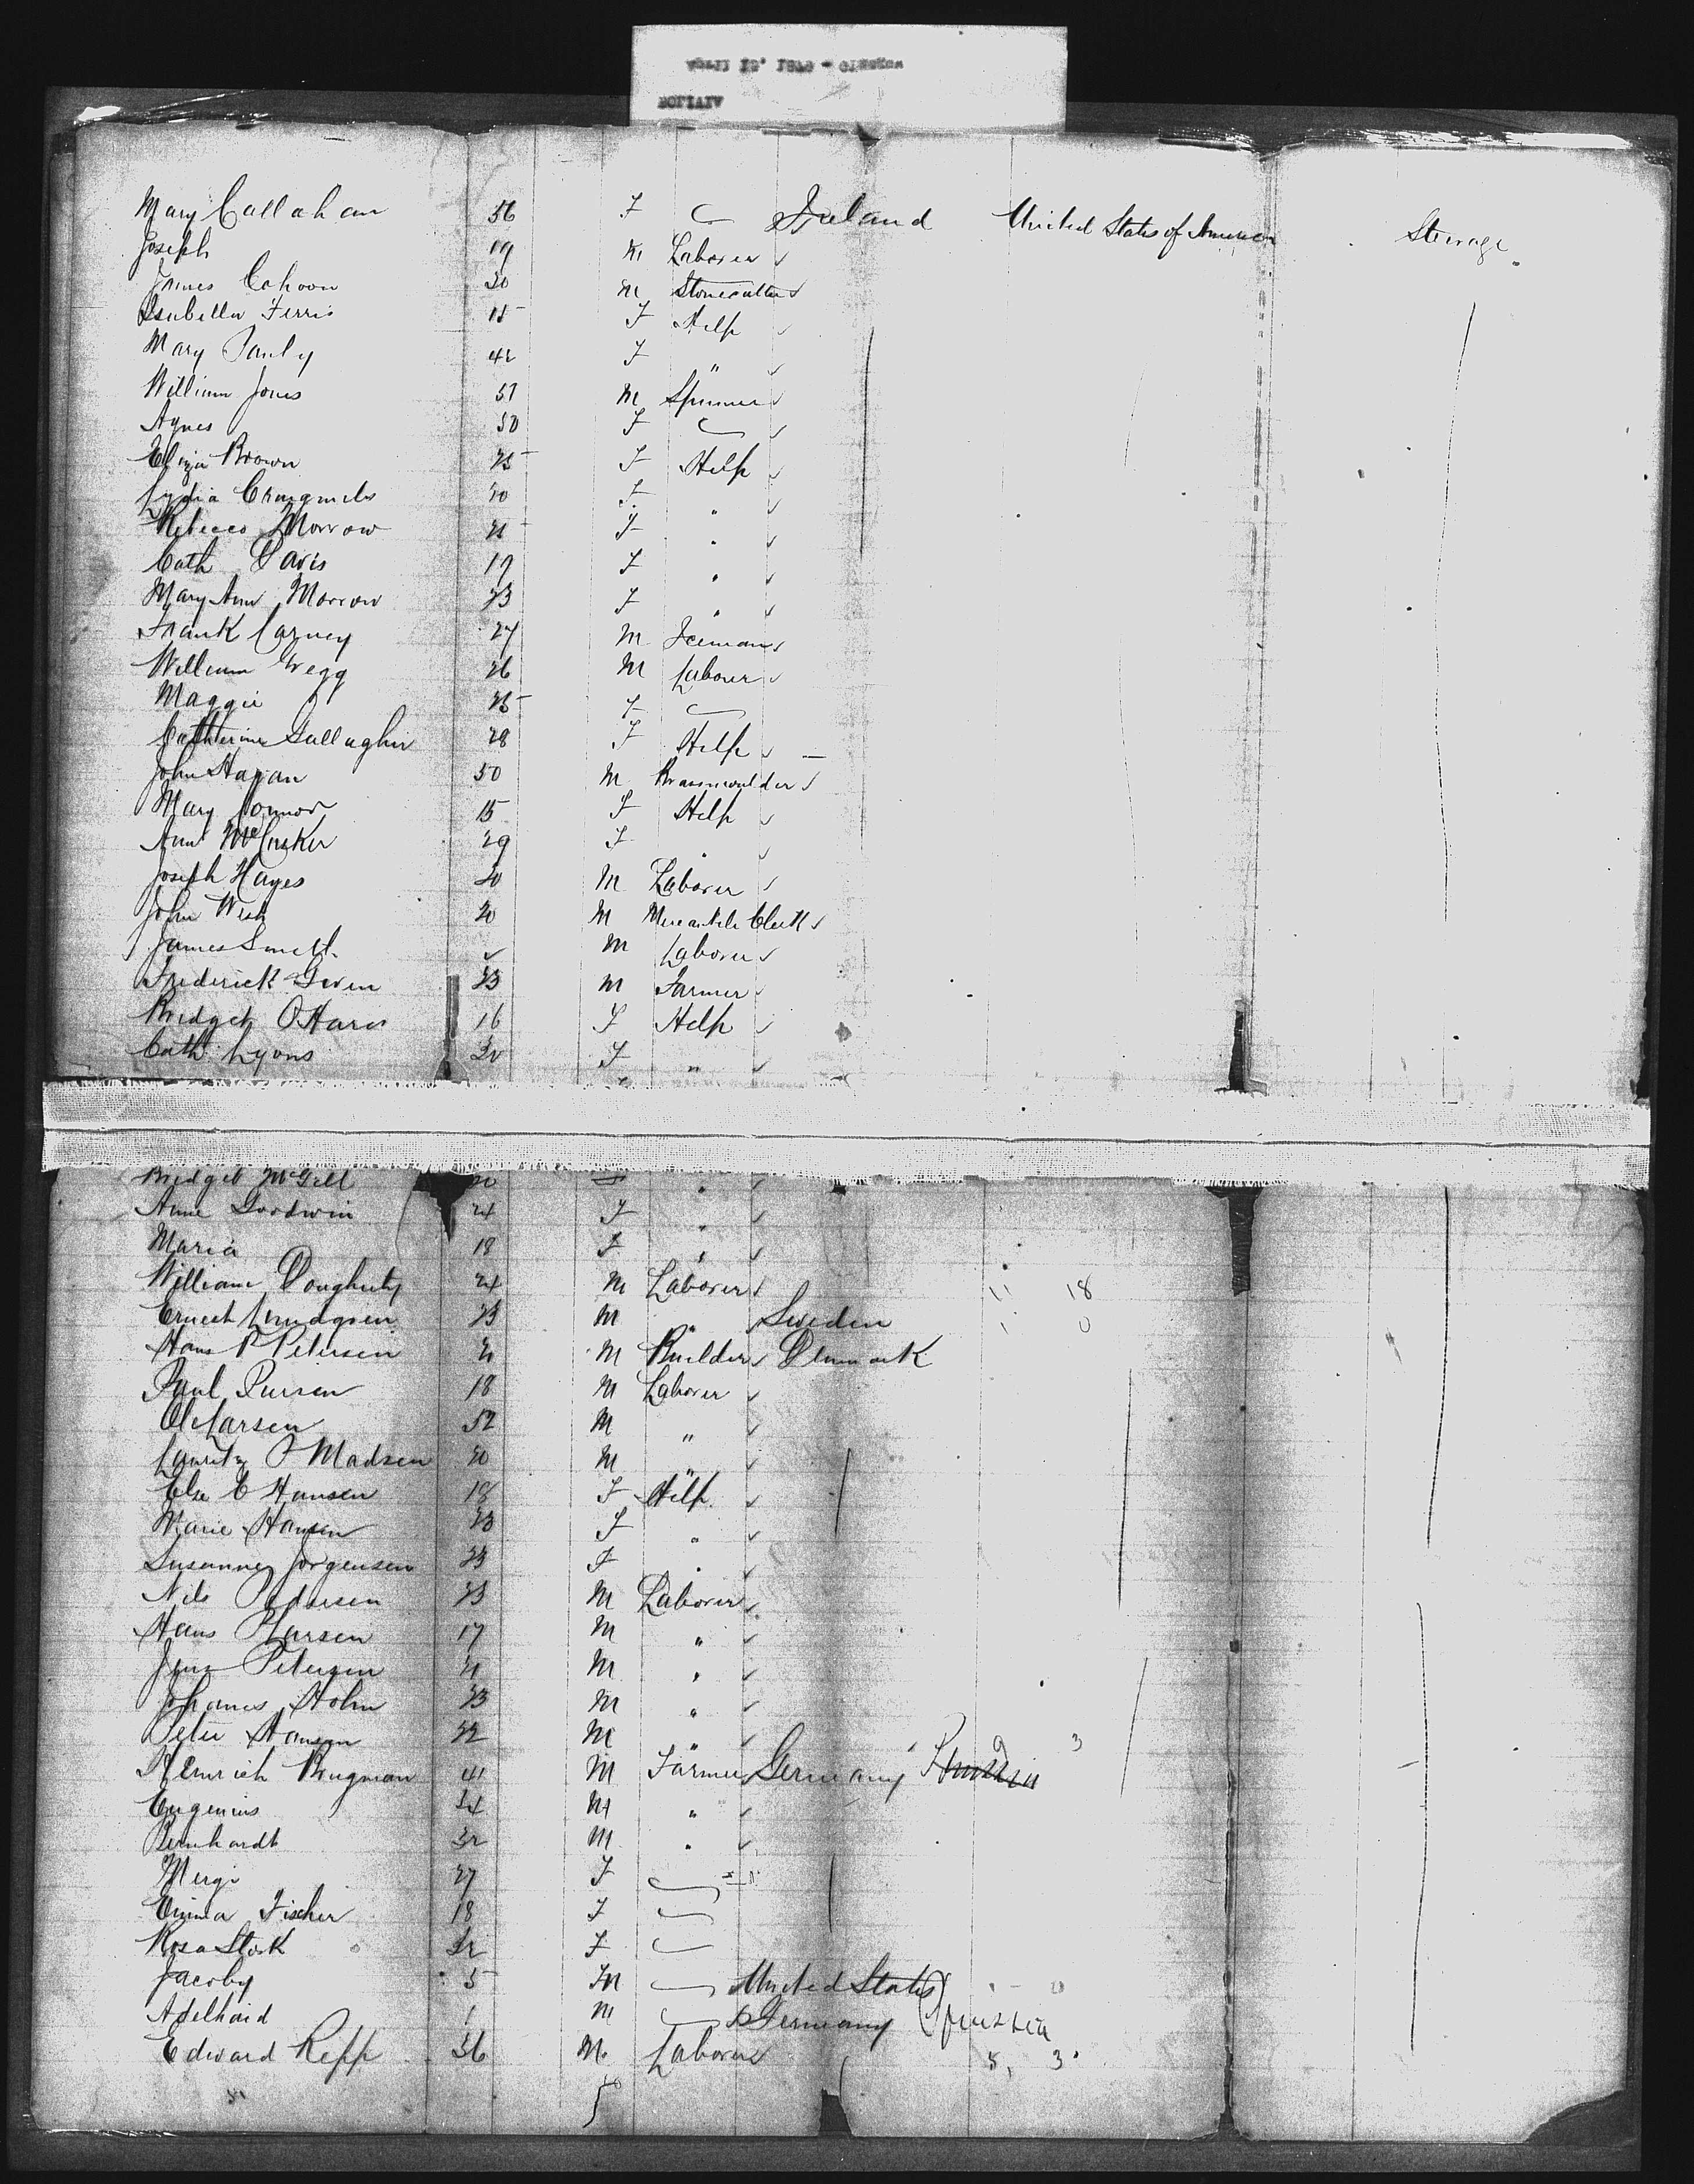 Mary Callahan 56 F Ireland United States of America Steerage
Joseph 19 M Laborer
James Cahoon 30 M Stonecutter
Isabella Ferris 15 F Help
Mary 42 F "
William Jones 51 M Spinner
Agnes 50 F
Eliza Brown 25 F Help
Lydia 20 F "
Rebecca Morrow F "
Cath Davis 19 F "
Mary Ann Morrow 23 F "
Frank Carney 27 M
William Gregg 26 M Laborer
Maggie 25 F
Catherine Gallagher 28 F Help
John Hagan 50 M Brassmoulder
Mary Connor 15 F Help
Ann McCusker 29 F "
Joseph Hayes 20 M Laborer
John 20 M Mercantile Clerk
James M Laborer
Frederick 23 M Farmer
Bridget O'Hara 16 F Help
Cath Lyons 20 F "
Bridget McGill 20 F "
Anne Goodwin 24 F "
Maria 18 F "
William Dougherty 24 M Laborer 11 18
Ernest Lundgren 23 M " Sweden 1 0
Hans P Petersen 21 M Builder Denmark
Paul 18 M Laborer
Ole Larsen 52 M "
Lauritz P Madsen 20 M "
Else C Hansen 18 F Help
Marie Hansen 23 F "
Susanne Jorgensen 23 F "
Nils Pedersen 23 M Laborer
Hans Larsen 17 M "
Jens Petersen 21 M "
Johannes Holm 23 M "
Peter Hansen 22 M " 9 3
Heinrich Brugman 41 M Farmer Germany
Eugenius 34 M "
Bernhardt 32 M "
27 F
Emma Fischer 18 F
Rosa Stork 32 F
Jacoby 5 M United States
Adelhaid 1 M Germany Prussia
Edward Repp 36 M Laborer 5, 3